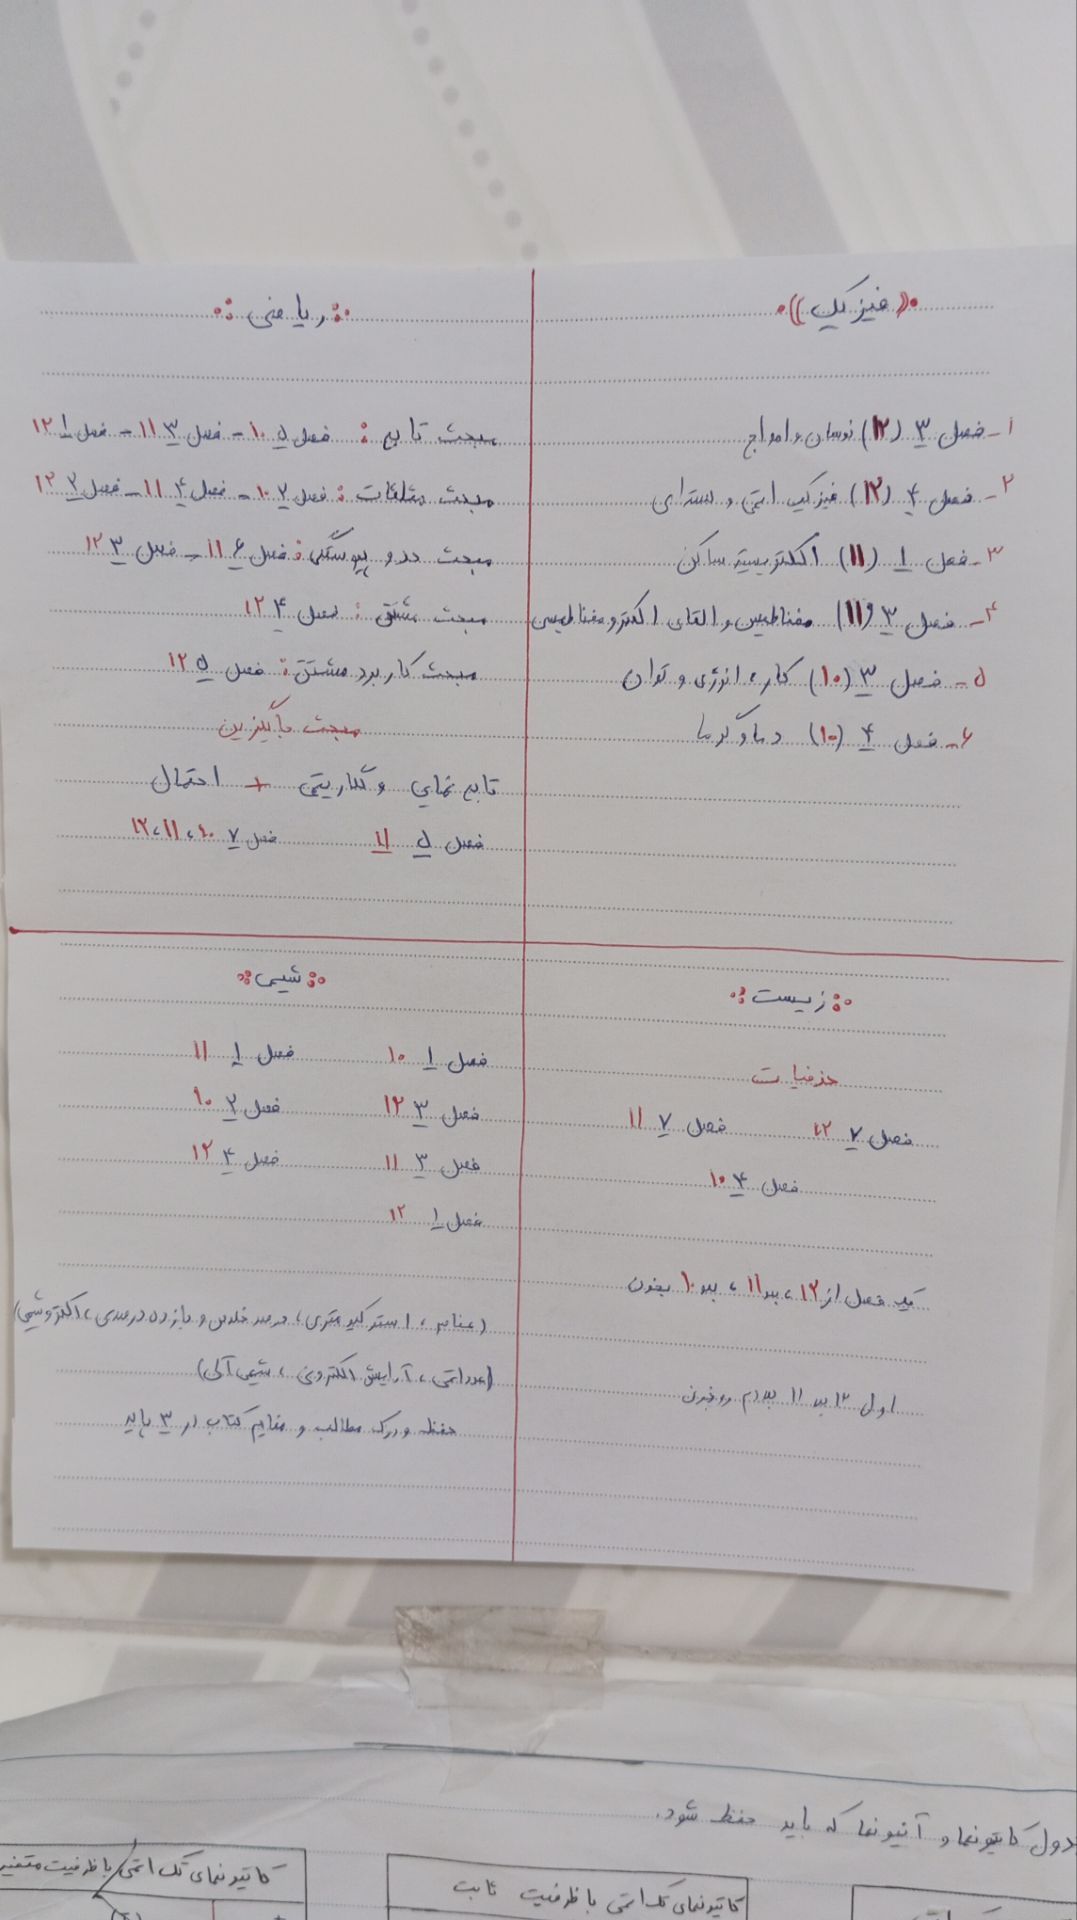 فیزیک
۱- فصل ۳ (۱۲) نوسان و امواج
۲- فصل ۴ (۱۲) فیزیک اتمی و هسته‌ای
۳- فصل ۱ (۱۱) الکتریسیته ساکن
۴- فصل ۳ (۱۱) مغناطیس و القای الکترومغناطیسی
۵- فصل ۳ (۱۰) کار، انرژی و توان
۶- فصل ۴ (۱۰) دما و گرما
ریاضی
مبحث تابع : فصل ۵ ۱۰ - فصل ۳ ۱۱ - فصل ۱ ۱۲
مبحث مثلثات : فصل ۲ ۱۰ - فصل ۴ ۱۱ - فصل ۲ ۱۲
مبحث حد و پیوستگی : فصل ۶ ۱۱ - فصل ۳ ۱۲
مبحث مشتق : فصل ۴ ۱۲
مبحث کاربرد مشتق : فصل ۵ ۱۲
مبحث جایگزین
تابع نمایی و لگاریتمی + احتمال
فصل ۵ ۱۱ فصل ۷ ۱۰، ۱۱، ۱۲
زیست
حذفیات
فصل ۷ ۱۲ فصل ۷ ۱۱
فصل ۴ ۱۰
یک فصل از ۱۲، بعد ۱۱، بعد ۱۰ بخون
اول ۱۲ بعد ۱۱ بعد دهم رو بخون
شیمی
فصل ۱ ۱۰ فصل ۱ ۱۱
فصل ۳ ۱۲ فصل ۲ ۱۰
فصل ۳ ۱۱ فصل ۴ ۱۲
فصل ۱ ۱۲
(عناصر، استوکیومتری، درصد خلوص و بازده درصدی، الکتروشیمی)
(عدد اتمی، آرایش الکترونی، شیمی آلی)
حفظ و درک مطالب و مفاهیم کتاب در ۳ پایه
جدول کاتیونها و آنیونها که باید حفظ شود.
کاتیونهای تک اتمی با ظرفیت ثابت
کاتیونهای تک اتمی با ظرفیت متغیر